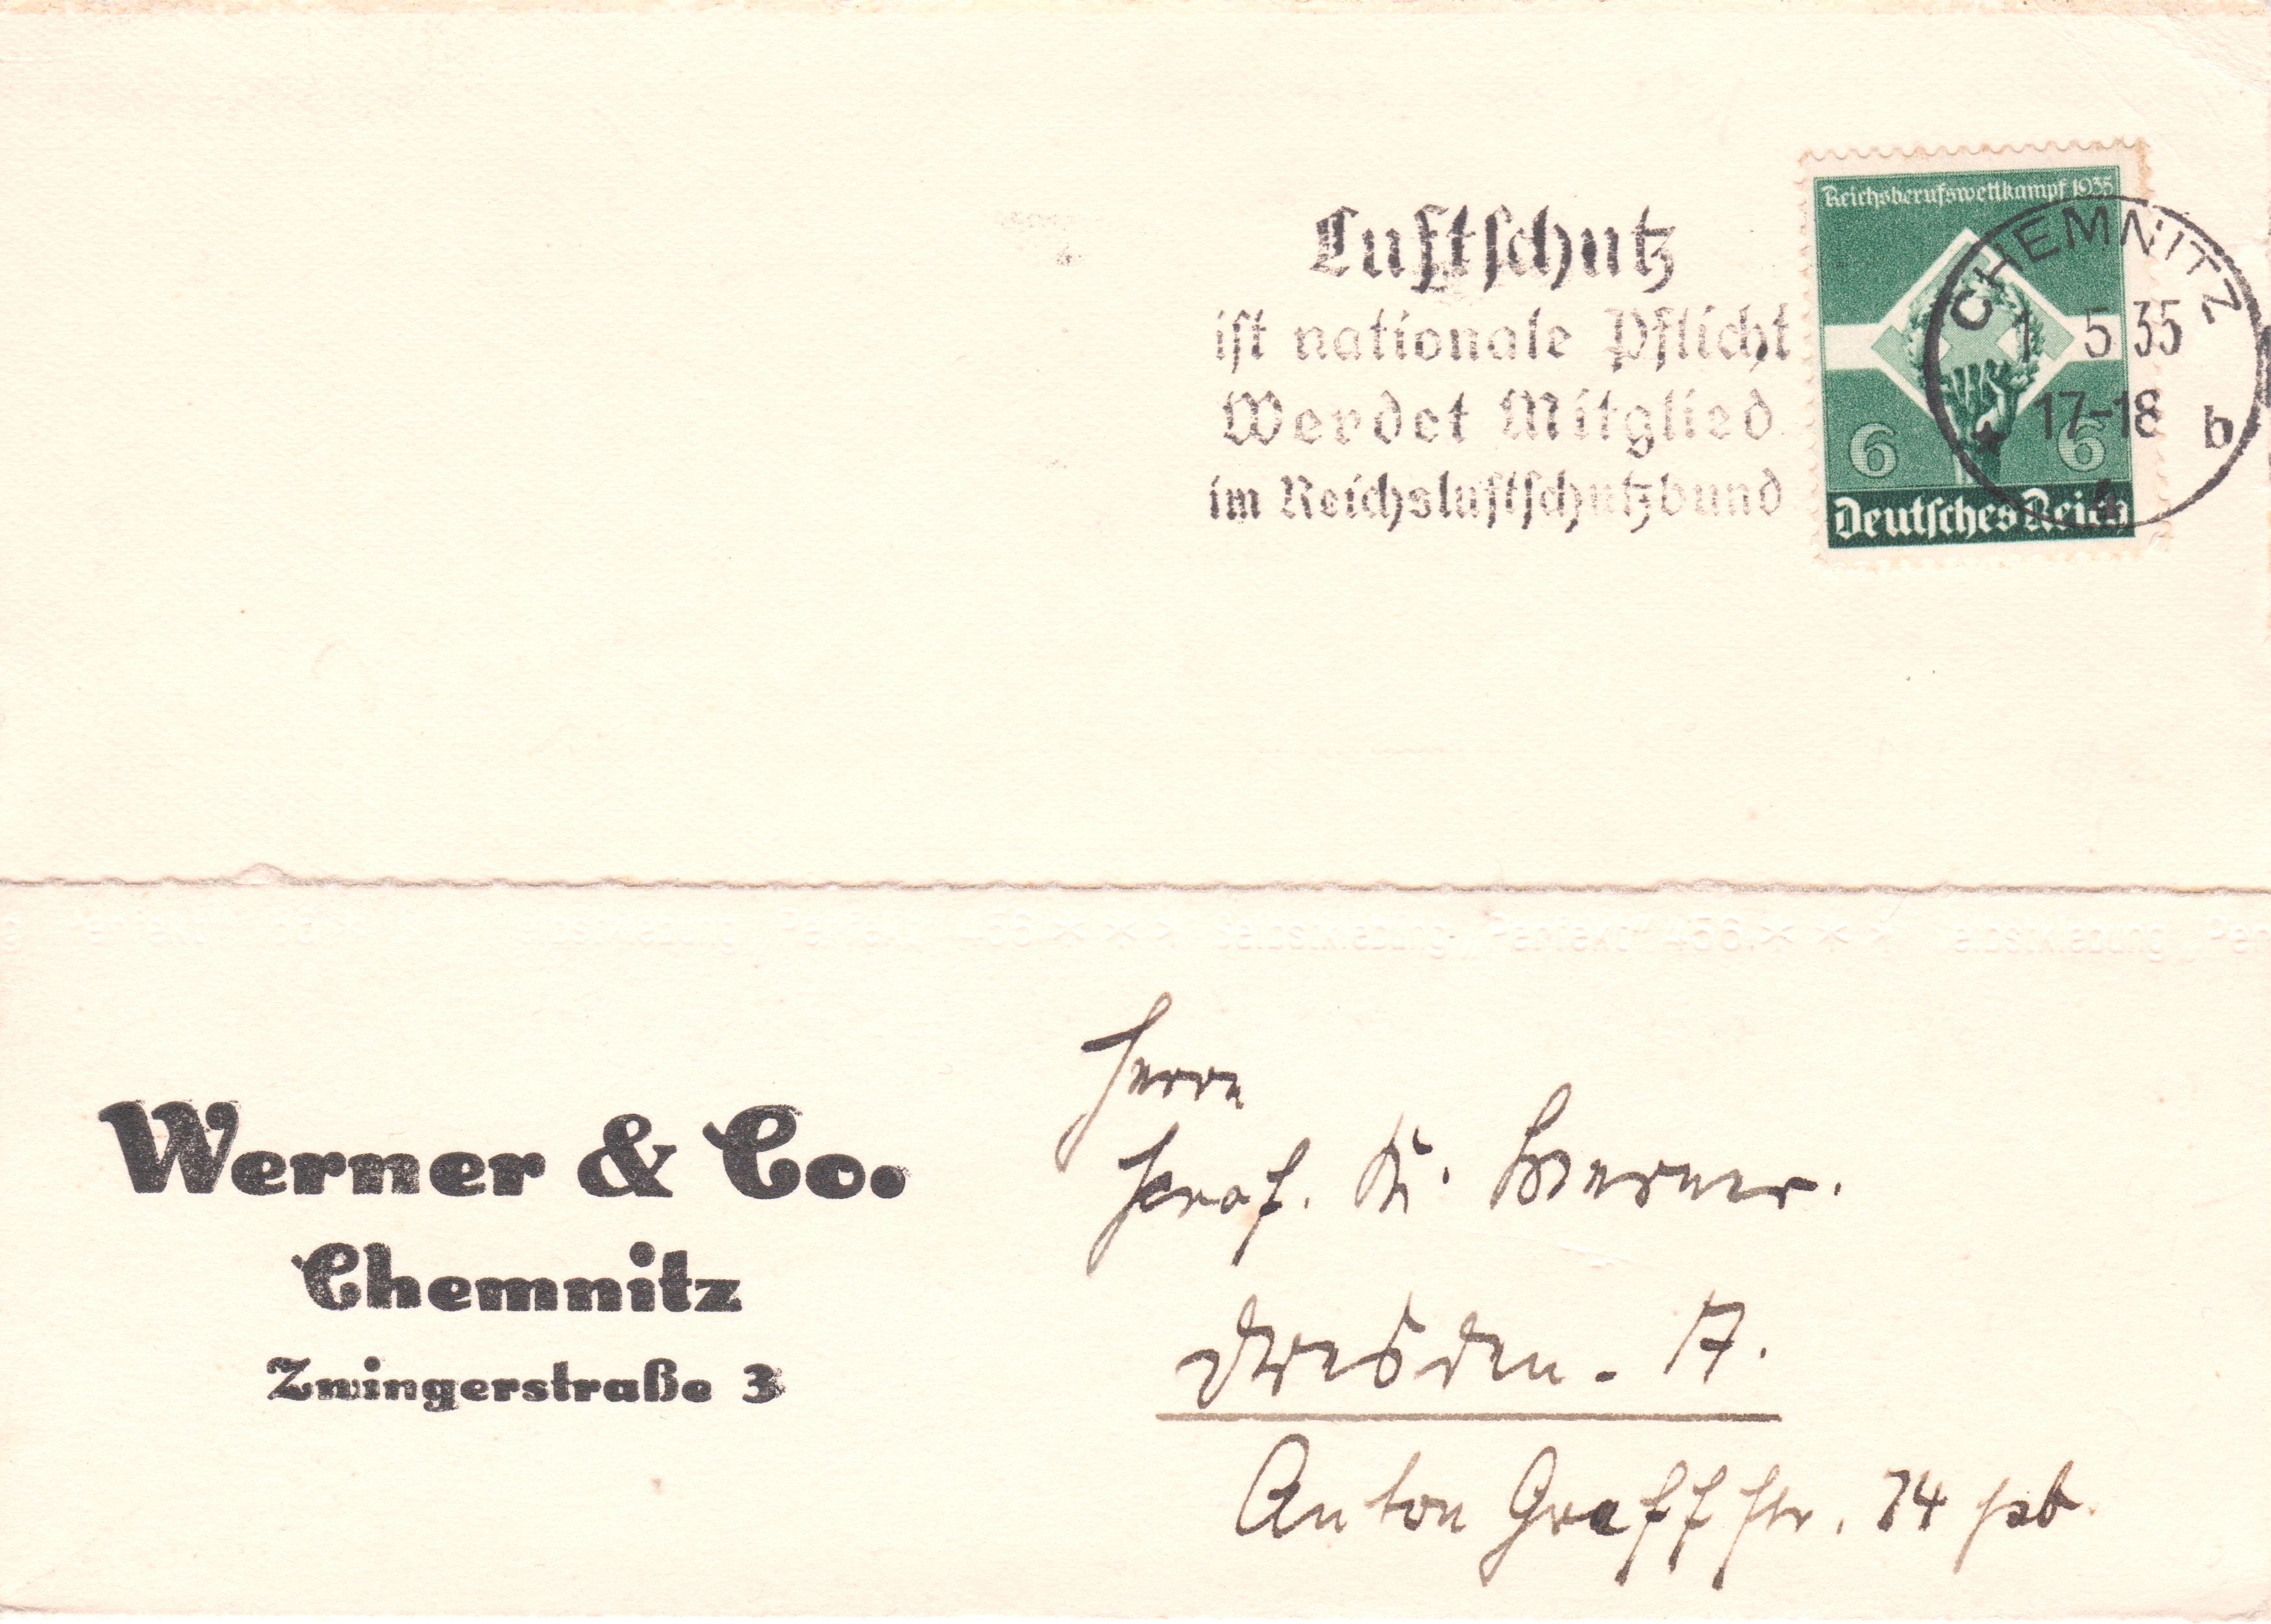 Luftschutz
ist nationale Pflicht
Werdet Mitglied
im Reichsluftschutzbund
Reichsberufswettkampf 1935
6 6
Deutsches Reich
CHEMNITZ
1 5 35
17-18
b
4
selbstklebung „Perfekt“ 456 * * * selbstklebung „Perfekt“ 456 * * *
Werner & Co.
Chemnitz
Zwingerstraße 3
Herrn
Prof. K. Werner.
Dresden - A.
Anton Graffstr. 14